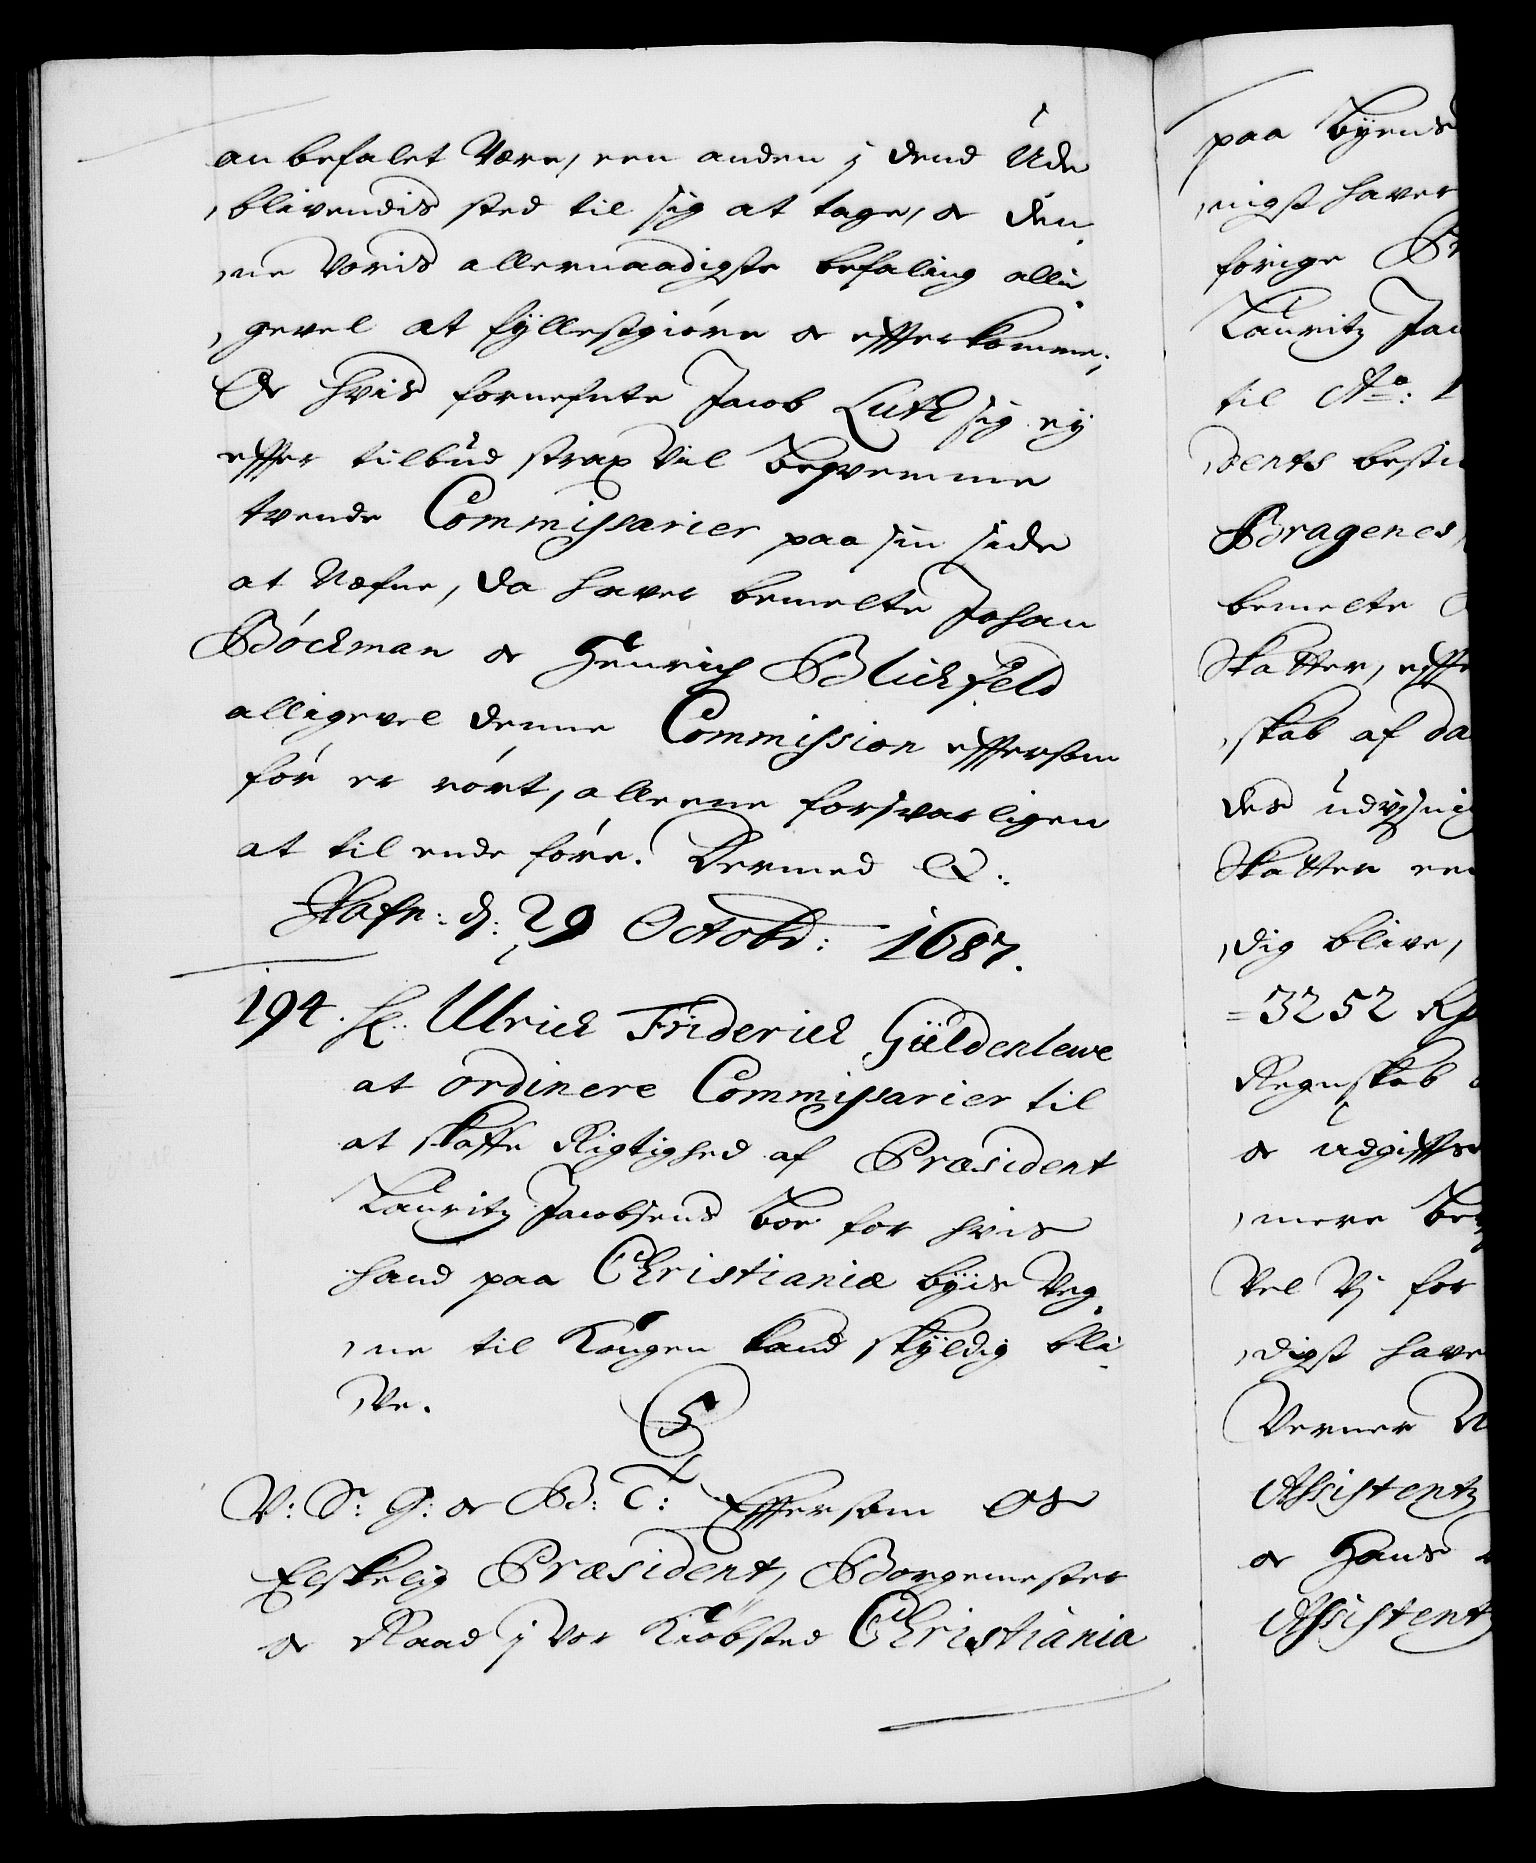 anbefalet være, een anden j dend Ude
blivendis sted til sig at tage, or den
ne voris allernaadigste befaling alli
gevel at fyllestgiøre or effterkomme,
Or hvis fornefnte Jacob Luth sig ey
effter tilbud strax vil beqvemme
tvende Commissarier paa sin side
at Næfne, da haver bemelte Johan
Böckman or Henrich Blickfeld
alligevel denne Commission effersom
før er rørt, alleene forsvarligen
at til ende føre. Dermed &:
Hafn: d: 29 Octobr: 1687.
194. H: Ulrich Friderich Güldenlewe
at ordinere Commissarier til
at skaffe Rigtighed af Præsident
Lauritz Jacobsens boe for hvis
hand paa Christianiæ byis Veg
ne til Kongen kand skyldig bli
ve.
C5
V: S: G: or B: T: Effersom Os
Elskelig Præsident, Borgemester
or Raad j vor Kiøbsted Christiania
paa byens
nigst haver
forige
Lauritz Jac
til Ao: 1
dents besti
Bragenes,
bemelte
Skatter, effte
skab af da
der udvisni
Skatter
dig blive,
=3252 R
Regnskab
or udgiffter
mere be
Vel Vj for
digst have
Verner
Assistentz
or Hans
Assistentz